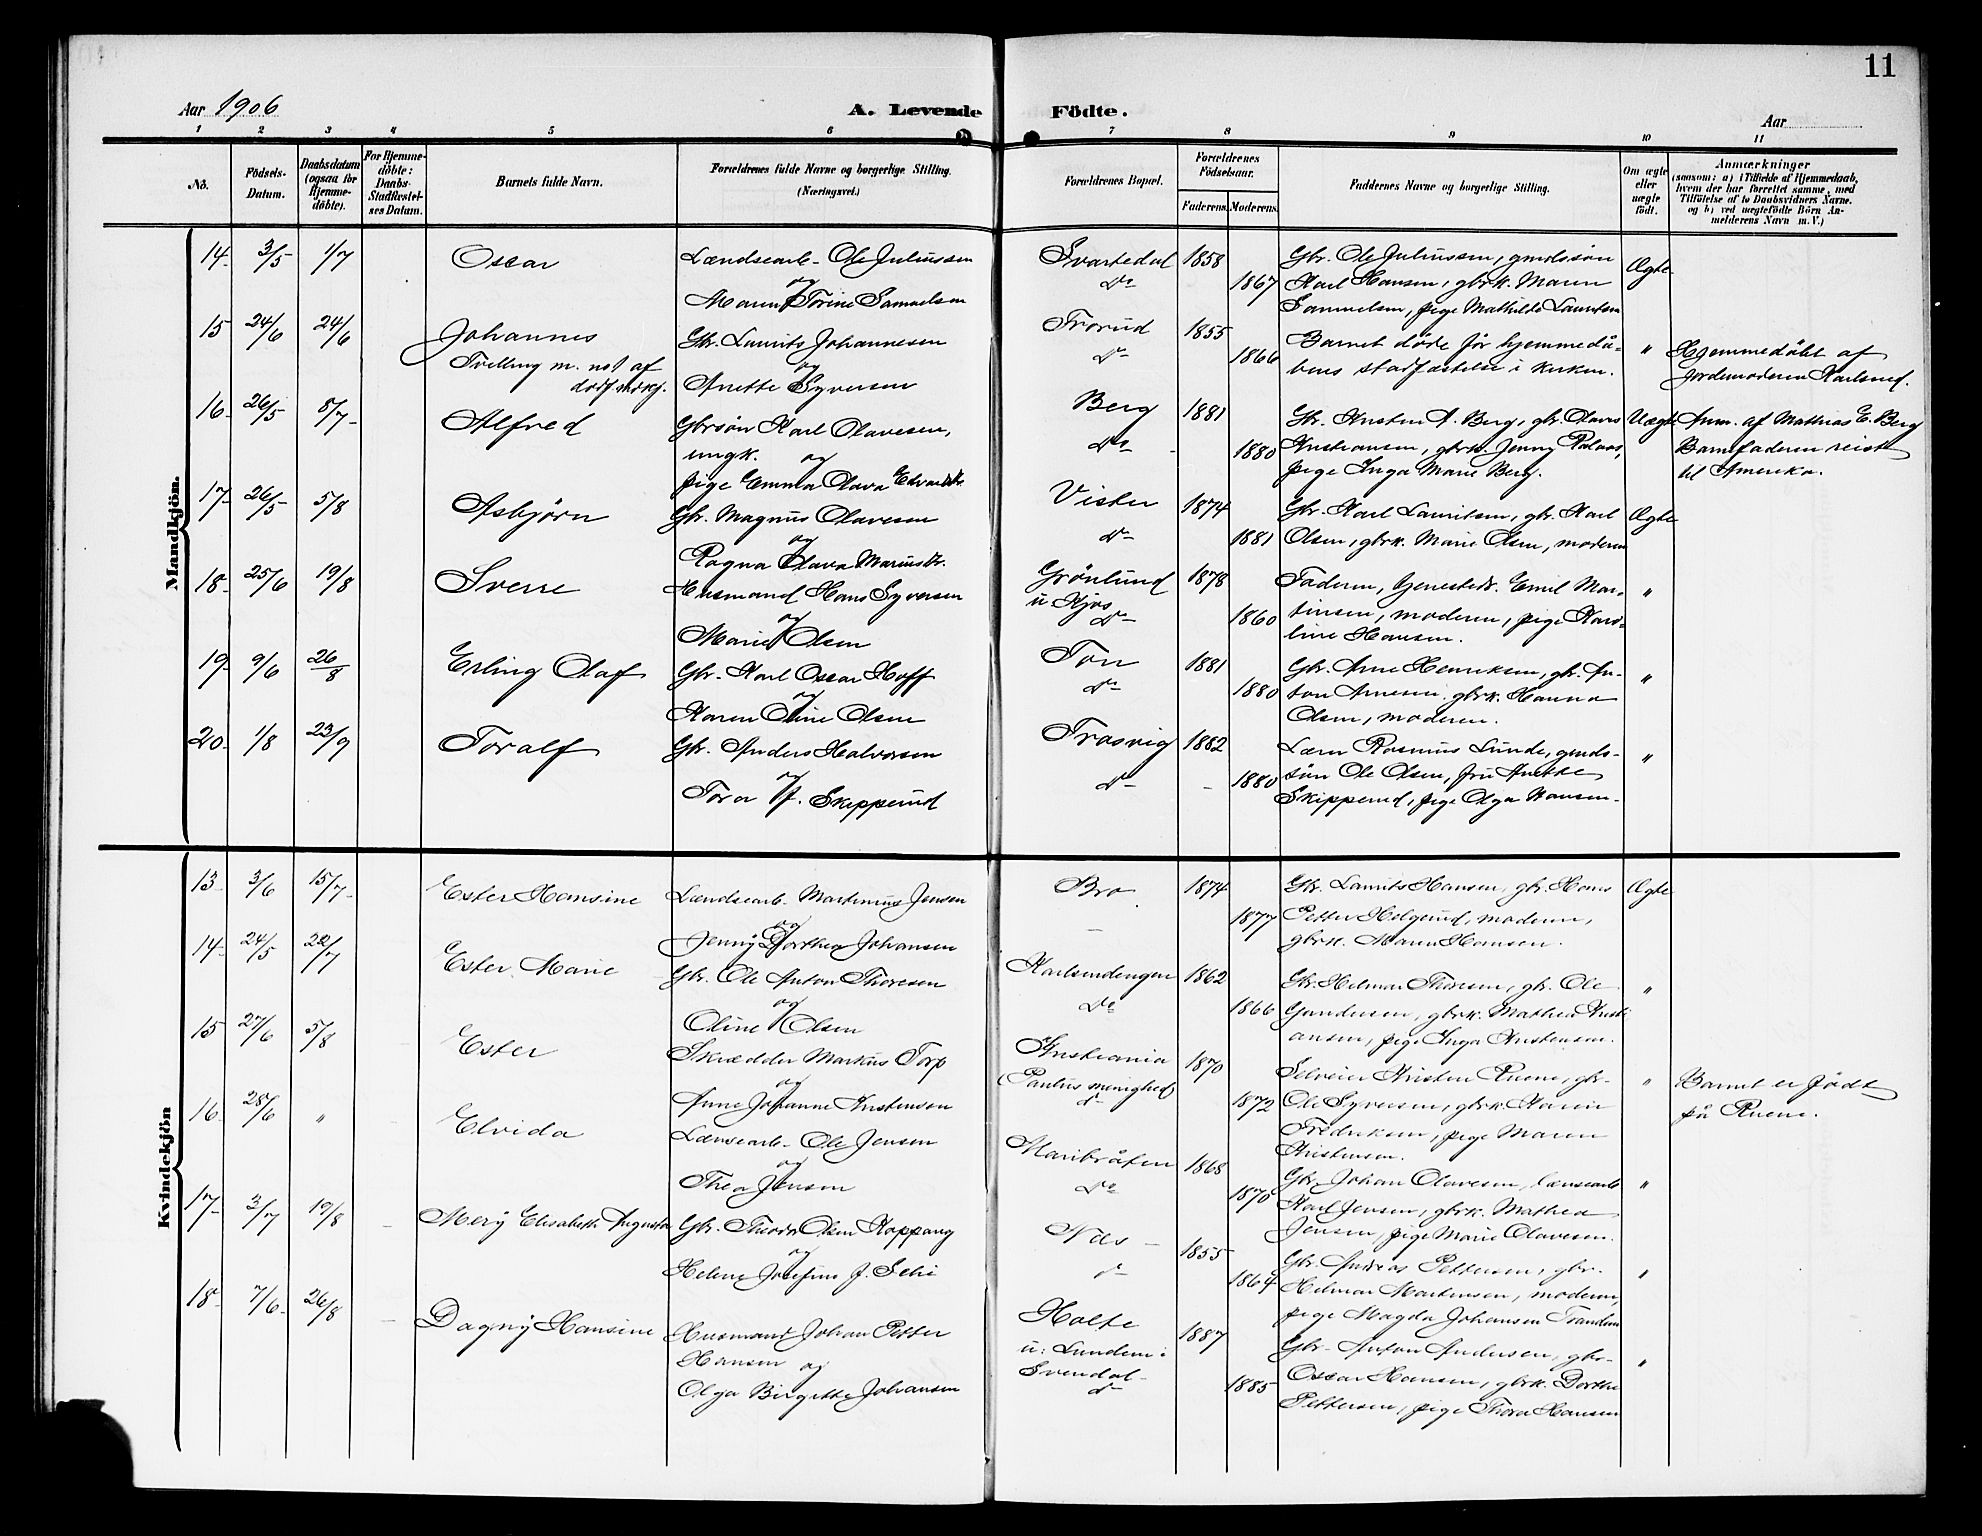 11
Aar 1906
A. Levende Födte.
Aar
1 2 3 4 5 6 7 8 9 10 11
No.
Födsels-Datum.
Daabsdatum (ogsaa for Hjemme-döbte).
For Hjemme-döbte: Daabs-Stadfæstel-ses Datum.
Barnets fulde Navn.
Forældrenes fulde Navne og borgerlige Stilling. (Næringsvei.)
Forældrenes Bopæl.
Forældrenes Födselsaar.
Faderens. Moderens.
Faddernes Navne og borgerlige Stilling.
Om ægte eller uægte födt.
Anmærkninger
(saasom: a) i Tilfælde af Hjemmedaab,
hvem der har forrettet samme, med
Tilföielse af to Daabsvidners Navne.
og b) ved uægtefödte Börn An-
melderens Navn m. V.)
Mandkjön.
14. 3/5 1/7 Oscar
Lændsearb. Ole Juliussen
og
Maren Torine Samuelsen
Svartedal 1858
do 1867
Gbr. Ole Juliussen, gmdssön
Karl Hansen, gbrk. Maren
Samuelsen, pige Mathilde Lauritsen
Ægte
15 24/6 24/6 Johannes
Tvilling m. no 1 af
dödf. mdkj.
Gbr. Laurits Johannesen
og
Anette Syversen
Trorud 1855
do 1866
Barnet döde för hjemmedå-
bens stadfæstelse i kirken.
"
Hjemmedöbt af
Jordemoderen Karlsrud.
16. 26/5 8/7 Alfred
Gbrsön Karl Olavesen,
ungk. og
pige Emma Olava Edvardsdr.
Berg 1881
do 1880
Gbr. Kristen A. Berg, gbr. Olaves
Kristiansen, gbrk. Jenny
pige Inga Marie Berg.
Uægte
Anm. af Mathias E. Berg
Barnefaderen reist
til Amerika.
17. 26/5 5/8 Asbjörn
Gbr. Magnus Olavesen
og
Ragna Olava Mariusdr.
Vister 1874
do 1881
Gbr. Karl Lauritsen, gbr. Karl
Olsen, gbrk. Marie Olsen, moderen
Ægte
18. 25/6 19/8 Sverre
Husmand Hans Syversen
og
Marie Olsen
Grönlund 1878
u Kjos
do 1860
Faderen, tjenestedr. Emil Mar-
tinsen, moderen, pige Karo-
line Hansen.
"
19. 9/6 26/8 Erling Olaf
Gbr. Karl Oscar Hoff
og
Karen Oline Olsen
Ton 1881
do 1880
Gbr. Arne Henriksen, gbr. An-
ton Arnesen, gbrk. Hanna
Olsen, moderen.
"
20. 1/8 23/9 Toralf
Gbr. Anders Halvorsen
og
Tora f. Skipperud
Trosvig 1882
do 1880
Lærer Rasmus Lunde, gmds-
sön Ole Olsen, fru Anette
Skipperud, pige Olga Hansen.
"
Kvindekjön
13. 3/6 15/7 Ester Hansine
Lændsearb. Martinius Jensen
og
Jenny Dorthea Johansen
Bro 1874
1877
Gbr. Laurits Hansen, gbr. Hans
Petter Helgerud, moderen,
gbrk. Maren Hansen.
Ægte
14. 24/5 22/7 Ester Marie
Gbr. Ole Anton Thoresen
og
Oline Olsen
Karlsendengen 1862
do 1866
Gbr. Helmer Thorsen, gbr. Ole
Gundersen, gbrk. Mathea Kristi
ansen, pige Inga Kristensen.
"
15 27/6 5/8 Ester
Skrædder Markus Torp
og
Anne Johanne Kristensen
Kristiania 1870
(Paulus menighed)
do 1872
Selveier Kristen Ruene, gbr.
Ole Syversen, gbrk. Karen
Fredriksen, pige Maren
Kristensen.
"
Barnet er födt
på Ruene.
16. 28/6 " Elvida
Lænsearb. Ole Jensen
og
Thea Jensen
Maribråten 1868
do 1870
Gbr. Johan Olavesen, lænsearb
Karl Jensen, gbrk. Mathea
Jensen, pige Marie Olavesen.
"
17. 3/7 19/8 Mery Elisabeth Augusta
Gbr. Theodor Olsen Kappang
og
Helene Josefine J. Selie
Næs 1855
do 1864
Gbr. Andreas Pettersen, gbr.
Helmer Martinsen, moderen,
pige Magda Johansen Trandem
"
18. 7/6 26/8 Dagny Hansine
Husmand Johan Petter
Hansen og
Olga Birgitte Johansen
Holte 1887
u: Lunden i
Svendal
do 1885
Gbr. Anton Andersen, gbr.
Oscar Hansen, gbrk. Dorthe
Pettersen, pige Thora Hansen
"